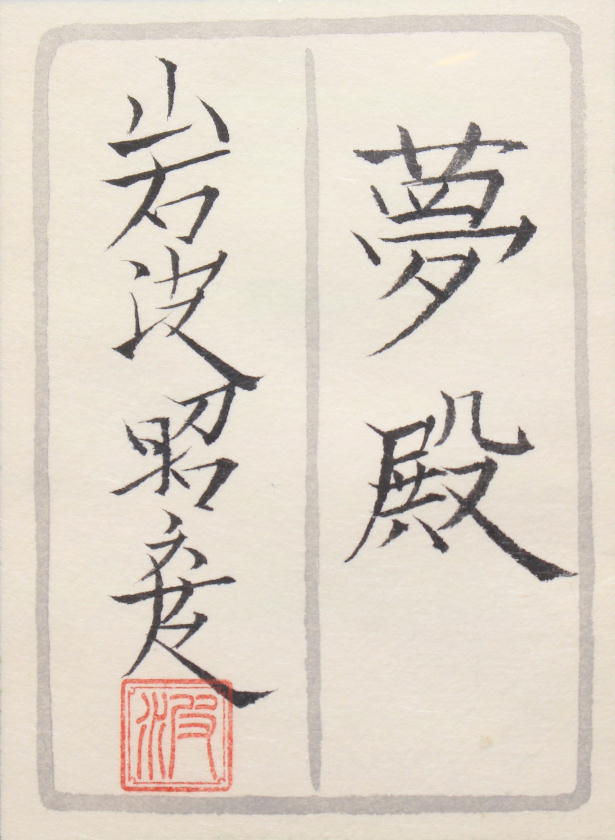 夢殿
岩波昭彦
波